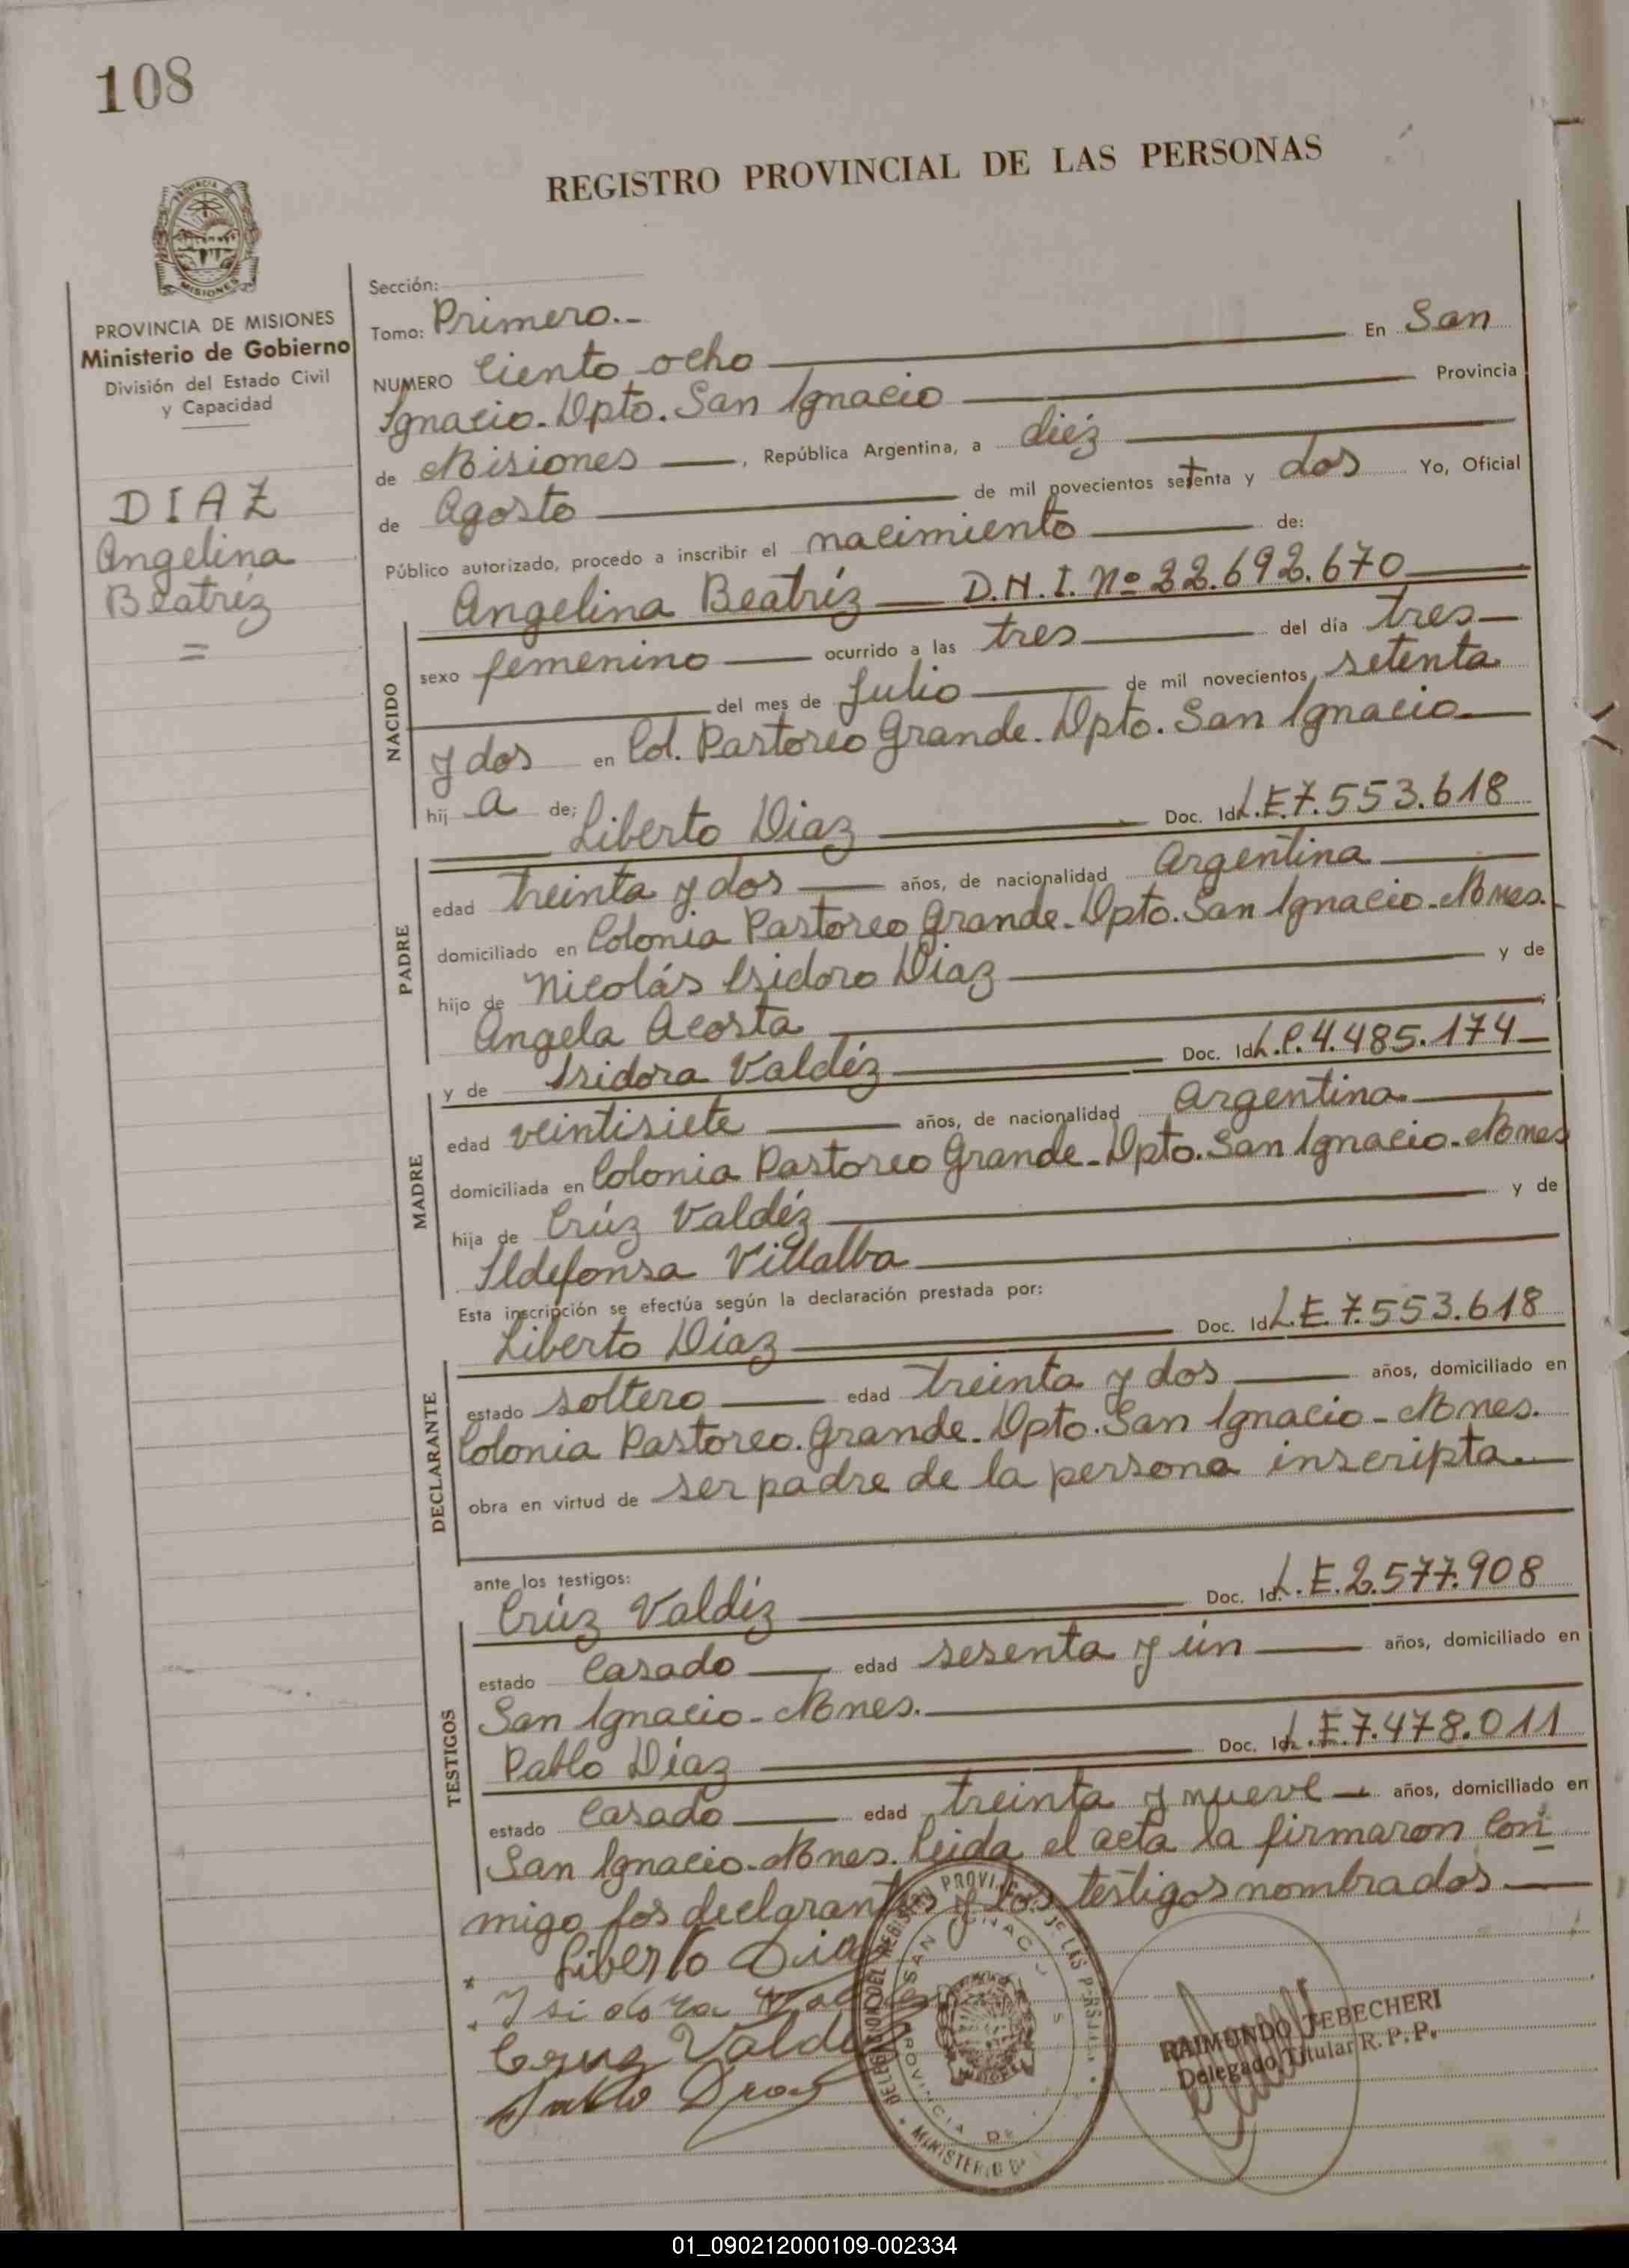 108
REGISTRO PROVINCIAL DE LAS PERSONAS
PROVINCIA DE MISIONES
Ministerio de Gobierno
División del Estado Civil
y Capacidad
DIAZ
Angelina
Beatríz
=
Sección:
Tomo: Primero.-
NUMERO Ciento ocho En San
Ignacio. Dpto. San Ignacio Provincia
de Misiones, República Argentina, a diéz
de Agosto de mil novecientos setenta y dos Yo, Oficial
Público autorizado, procedo a inscribir el nacimiento de:
Angelina Beatríz D.N.I. Nº 22.692.670
NACIDO
sexo femenino ocurrido a las tres del día tres
del mes de Julio de mil novecientos setenta
y dos en Col. Pastoreo Grande. Dpto. San Ignacio
hij a de: Liberto Diaz Doc. Id. L.E. 7.553.618
PADRE
edad treinta y dos años, de nacionalidad Argentina
domiciliado en Colonia Pastoreo Grande. Dpto. San Ignacio. Mnes.
hijo de Nicolás Isidoro Diaz y de
Angela Acosta
y de Isidora Valdéz Doc. Id. L.C. 4.485.174
MADRE
edad veintisiete años, de nacionalidad Argentina.
domiciliada en Colonia Pastoreo Grande. Dpto. San Ignacio. Mnes
hija de Crúz Valdéz y de
Ildefonsa Villalba
Esta inscripción se efectúa según la declaración prestada por:
Liberto Diaz Doc. Id. L.E. 7.553.618
DECLARANTE
estado soltero edad treinta y dos años, domiciliado en
Colonia Pastoreo. Grande. Dpto. San Ignacio - Mnes.
obra en virtud de ser padre de la persona inscripta.
ante los testigos:
Crúz Valdéz Doc. Id. L.E. 2.577.908
TESTIGOS
estado Casado edad sesenta y ún años, domiciliado en
San Ignacio - Mnes.
Pablo Díaz Doc. Id. L.E. 7.478.011
estado Casado edad treinta y nueve años, domiciliado en
San Ignacio. Mnes. Leida el acta la firmaron con
migo los declarantes y los testigos nombrados
Liberto Diaz
Isidora
Cruz Valdez
Pablo Diaz
RAIMUNDO TEBECHERI
Delegado Titular R. P. P.
01_090212000109-002334